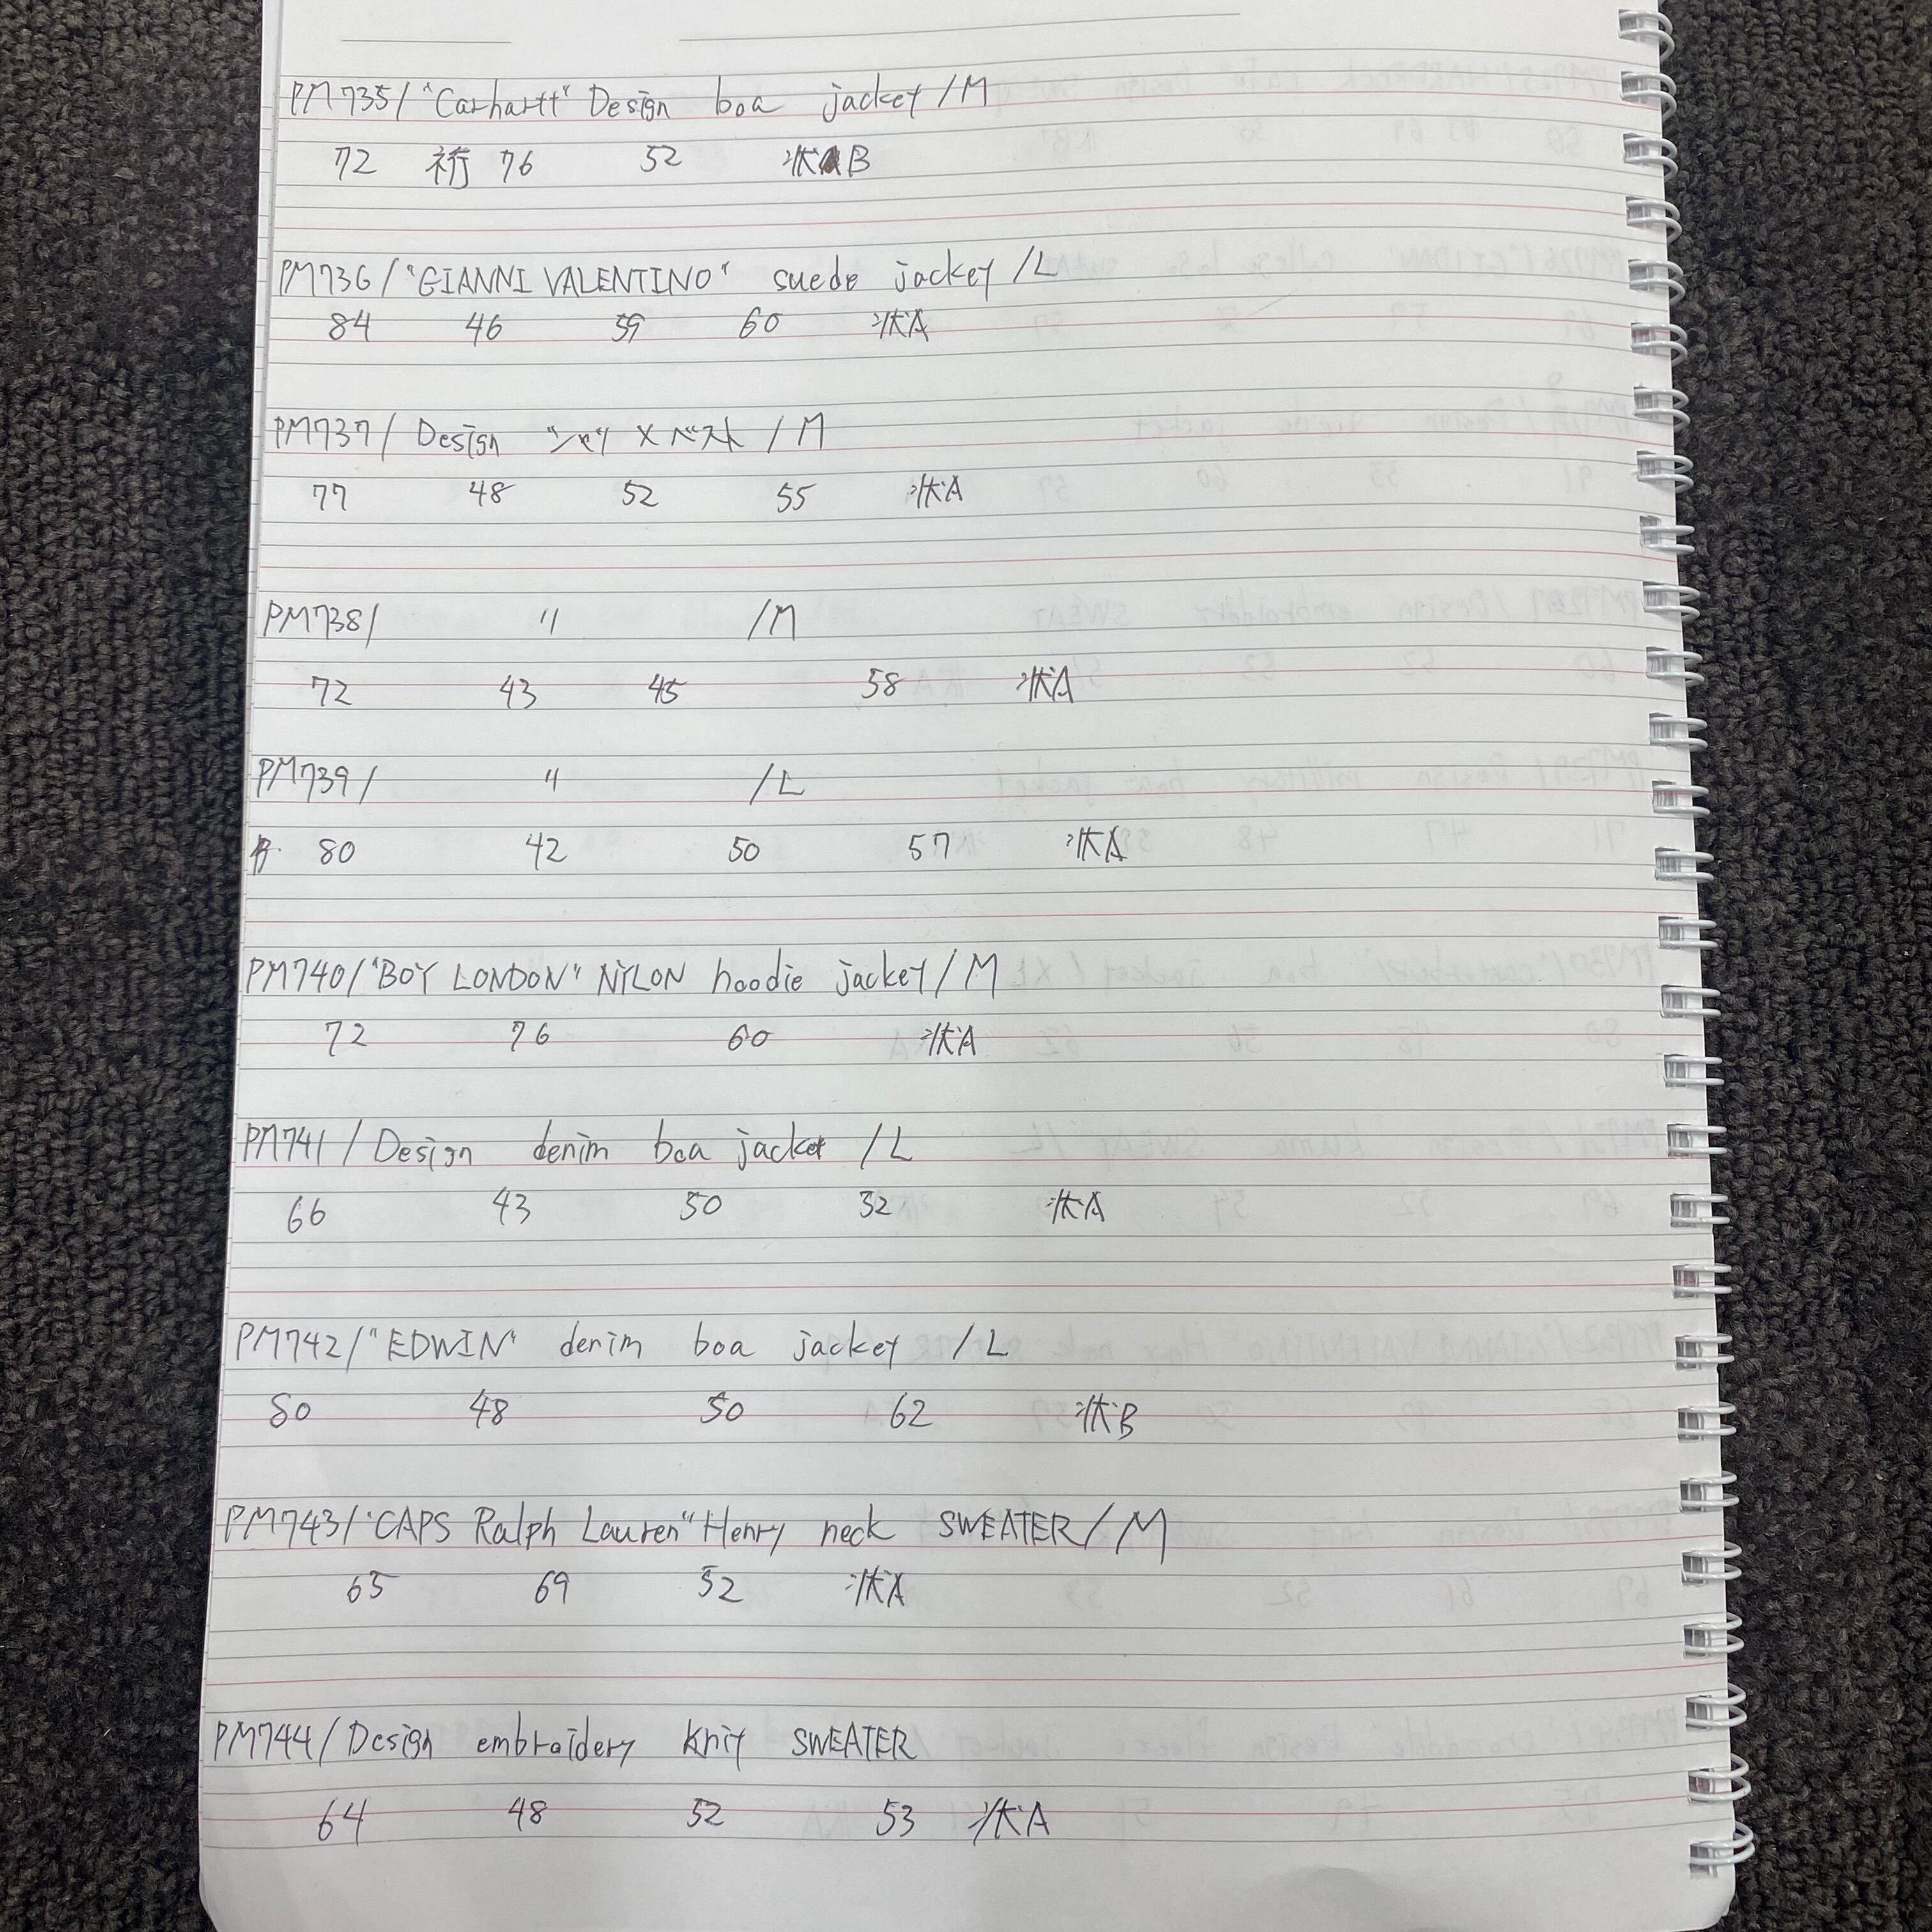 PM735/"Carhartt" Design boa jacket/M
72 裄 76 52 状B
PM736/"GIANNI VALENTINO" suede jacket/L
84 46 59 60 状A
PM737/Design シャツ×ベスト/M
77 48 52 55 状A
PM738/ 〃 /M
72 43 45 58 状A
PM739/ 〃 /L
80 42 50 57 状A
PM740/"BOY LONDON" NYLON hoodie jacket/M
72 76 60 状A
PM741/Design denim boa jacket/L
66 43 50 52 状A
PM742/"EDWIN" denim boa jacket/L
80 48 50 62 状B
PM743/"CAPS Ralph Lauren" Henry neck SWEATER/M
65 69 52 状A
PM744/Design embroidery knit SWEATER
64 48 52 53 状A